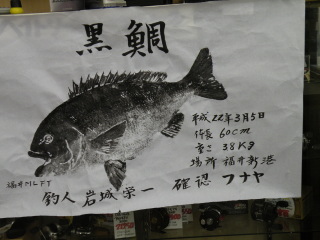 黒鯛
平成22年3月5日
体長 60cm
重さ 3.8Kg
場所 福井新港
福井ﾊﾙ FT
釣人 岩城栄一 確認 フナヤ